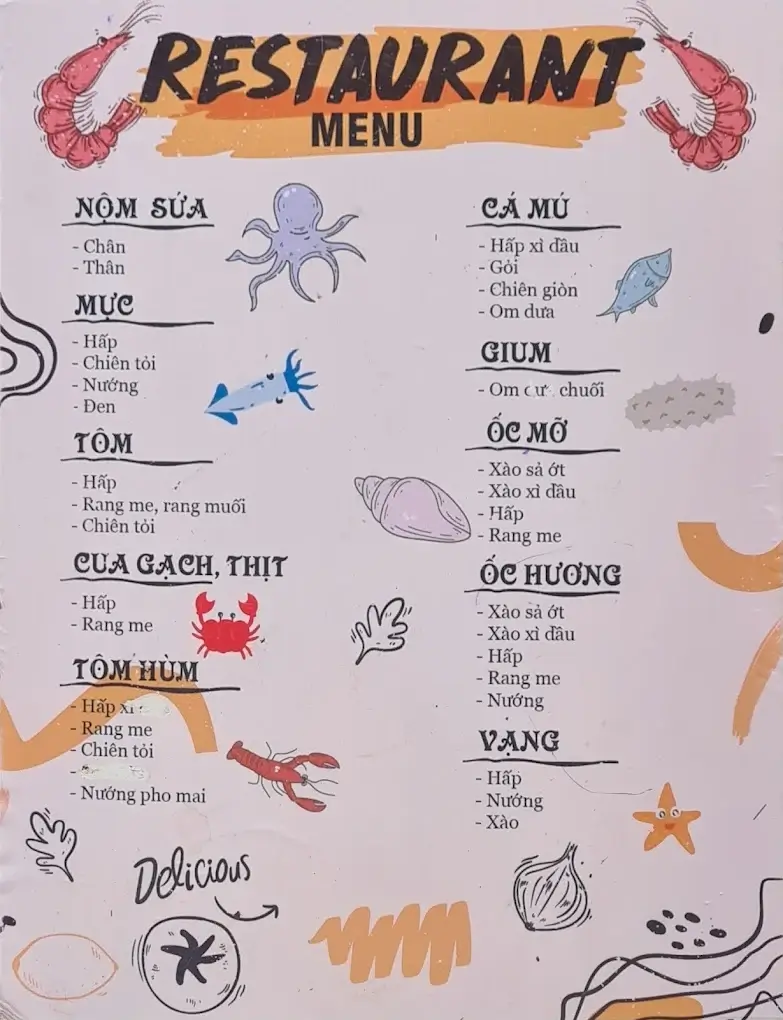 RESTAURANT
MENU
NỘM SỨA
- Chân
- Thân
MỰC
- Hấp
- Chiên tỏi
- Nướng
- Đen
TÔM
- Hấp
- Rang me, rang muối
- Chiên tỏi
CUA GẠCH, THỊT
- Hấp
- Rang me
TÔM HÙM
- Hấp xì
- Rang me
- Chiên tỏi
-
- Nướng pho mai
Delicious
CÁ MÚ
- Hấp xì dầu
- Gỏi
- Chiên giòn
- Om dưa
GIUM
- Om chuối
ỐC MỠ
- Xào sả ớt
- Xào xì dầu
- Hấp
- Rang me
ỐC HƯƠNG
- Xào sả ớt
- Xào xì dầu
- Hấp
- Rang me
- Nướng
VẠNG
- Hấp
- Nướng
- Xào